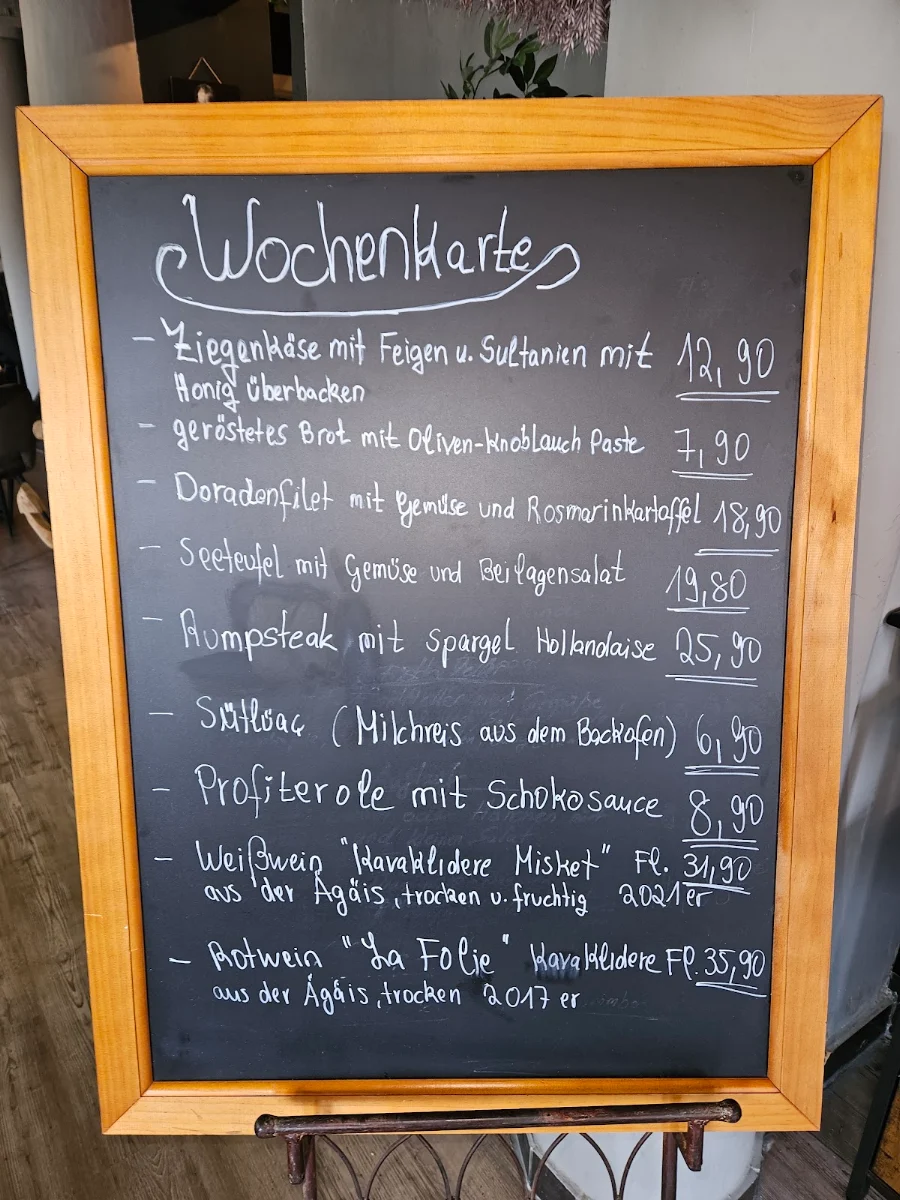 Wochenkarte
- Ziegenkäse mit Feigen u. Sultanien mit 12,90
Honig überbacken
- geröstetes Brot mit Oliven-Knoblauch Paste 7,90
- Doradenfilet mit Gemüse und Rosmarinkartoffel 18,90
- Seeteufel mit Gemüse und Beilagensalat 19,80
- Rumpsteak mit Spargel Hollandaise 25,90
- Sütlüaç (Milchreis aus dem Backofen) 6,90
- Profiterole mit Schokosauce 8,90
- Weißwein "Kavaklidere Misket" Fl. 31,90
aus der Ägäis, trocken u. fruchtig 2021er
- Rotwein "La Folie" Kavaklidere Fl. 35,90
aus der Ägäis, trocken 2017er